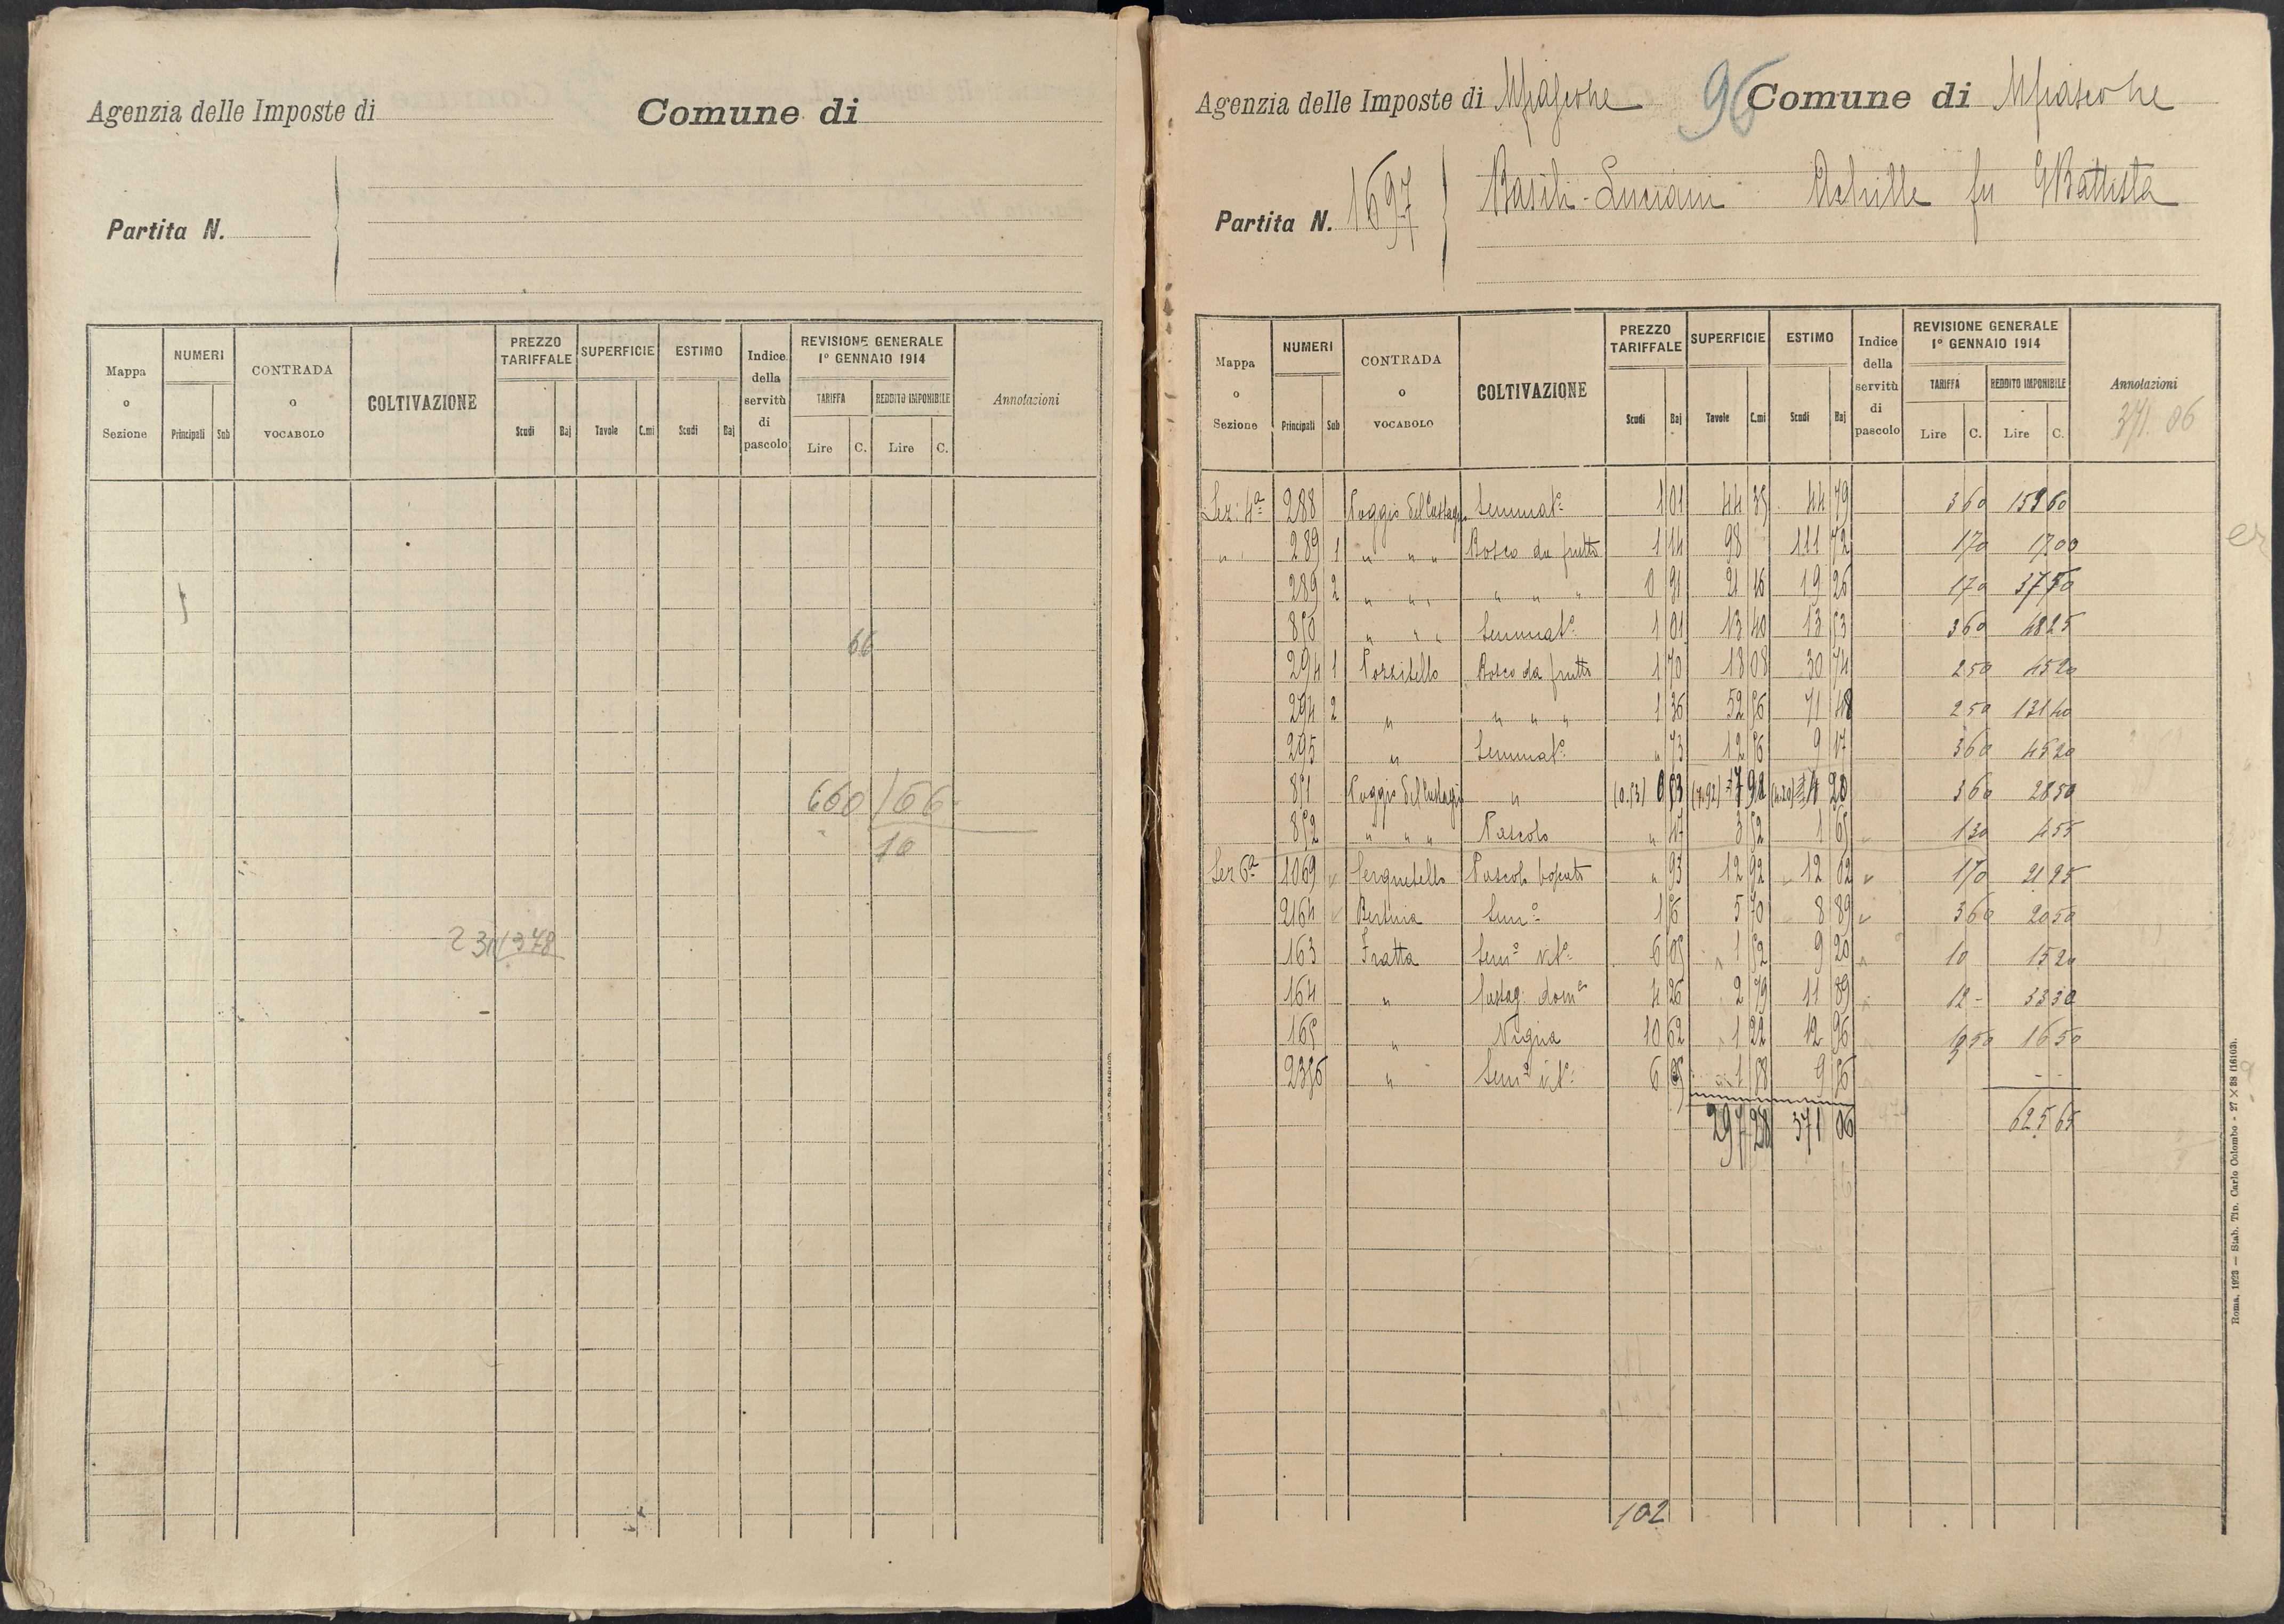 Agenzia delle Imposte di
Comune di
Partita N.
Mappa o Sezione | NUMERI Principali Sub | CONTRADA o VOCABOLO | COLTIVAZIONE | PREZZO TARIFFALE Scudi Baj | SUPERFICIE Tavole C.mi | ESTIMO Scudi Baj | Indice della servitù di pascolo | REVISIONE GENERALE 1º GENNAIO 1914 TARIFFA Lire C. REDDITO IMPONIBILE Lire C. | Annotazioni
66
660/66
10
Agenzia delle Imposte di
96
Comune di
Partita N. 1697
Basili-Luciani Achille fu GBattista
Mappa o Sezione | NUMERI Principali Sub | CONTRADA o VOCABOLO | COLTIVAZIONE | PREZZO TARIFFALE Scudi Baj | SUPERFICIE Tavole C.mi | ESTIMO Scudi Baj | Indice della servitù di pascolo | REVISIONE GENERALE 1º GENNAIO 1914 TARIFFA Lire C. REDDITO IMPONIBILE Lire C. | Annotazioni
371.06
Sez: 4ª 288 Poggio del Seminatº 1 01 44 35 44 79 3 60 159 60
" 289 1 " " " Bosco da frutto 1 14 98 111 72 1 70
289 2 " " " " " " 0 91 21 16 19 26 1 70 37 50
850 " " " Seminatº 1 01 13 40 13 53 3 60 48 25
294 1 Pozzitello Bosco da frutto 1 70 18 08 30 74 2 50 45 20
294 2 " " " " 1 36 52 56 71 48 2 50 131 40
295 " Seminatº " 73 12 56 9 17 3 60 45 20
851 Poggio del " (0.53) 0 53 (7.92) 7 92 (4.20) 4 20 3 60 28 50
852 " " " Pascolo " 47 3 52 1 65 1 30 4 55
Sez 6ª 1069 Pascolo boscato " 93 12 92 12 02 1 70 21 95
2164 Semº 1 56 5 70 8 89 3 60 20 50
163 Fratta Semº vitº 6 05 1 52 9 20 10 15 20
164 " Castag. domº 4 26 2 79 11 89 12 - 33 30
165 " Vigna 10 62 1 22 12 96 13 50 16 50
2356 " Semº vitº 6 05 1 58 9 56
297 28 371 06
625 65
102
Roma, 1923 — Stab. Tip. Carlo Colombo - 27 × 38 (16103).